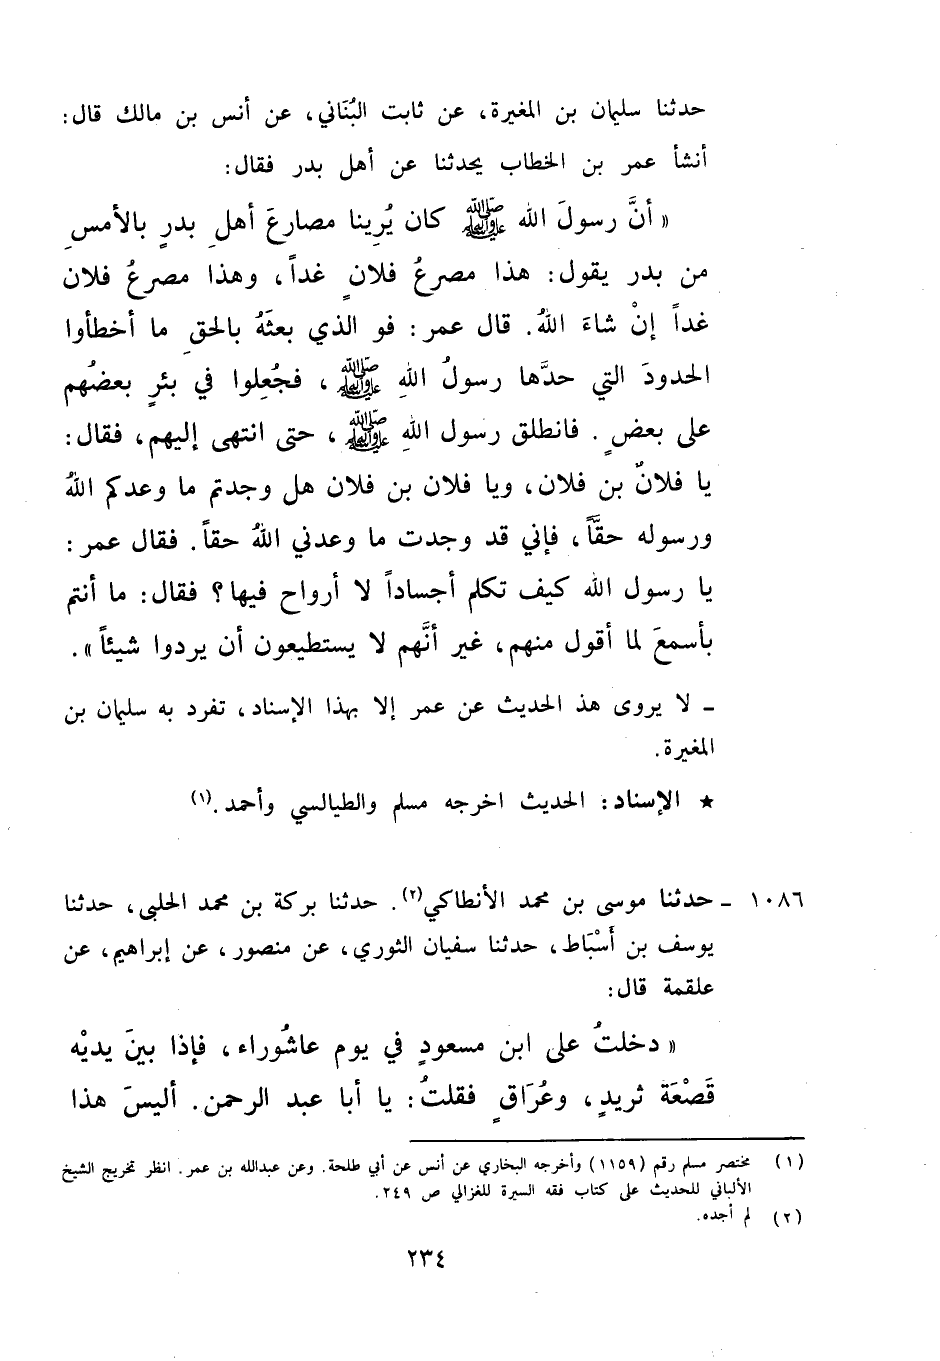 حدثنا سليمان بن المغيرة، عن ثابت البُنَاني، عن أنس بن مالك قال:
أنشأ عمر بن الخطاب يحدثنا عن أهل بدر فقال:
« أنَّ رسولَ الله ﷺ كان يُرِينا مصارعَ أهلِ بدرٍ بالأمسِ
من بدر يقول: هذا مصرعُ فلانٍ غداً، وهذا مصرعُ فلان
غداً إنْ شاءَ اللهُ. قال عمر: فو الذي بعثَهُ بالحقِ ما أخطأوا
الحدودَ التي حدَّها رسولُ اللهِ ﷺ، فجُعِلوا في بئرٍ بعضُهم
على بعضٍ. فانطلق رسول اللهِ ﷺ، حتى انتهى إليهم، فقال:
يا فلانُ بن فلان، ويا فلان بن فلان هل وجدتم ما وعدكم اللهُ
ورسوله حقَّاً، فإني قد وجدت ما وعدني اللهُ حقاً. فقال عمر:
يا رسول الله كيف تكلم أجساداً لا أرواح فيها؟ فقال: ما أنتم
بأسمعَ لما أقول منهم، غير أنَّهم لا يستطيعون أن يردوا شيئاً ».
ـ لا يروى هذ الحديث عن عمر إلا بهذا الإسناد، تفرد به سليمان بن
المغيرة.
★ الإسناد: الحديث اخرجه مسلم والطيالسي وأحمد.(١)
١٠٨٦ ـ حدثنا موسى بن محمد الأنطاكي(٢). حدثنا بركة بن محمد الحلبي، حدثنا
يوسف بن أَسْبَاط، حدثنا سفيان الثوري، عن منصور، عن إبراهيم، عن
علقمة قال:
« دخلتُ على ابن مسعودٍ في يوم عاشُوراء، فإذا بينَ يديْه
قَصْعَة ثريدٍ، وعُرَاقٍ فقلتُ: يا أبا عبد الرحمن. أليسَ هذا
(١) مختصر مسلم رقم (١١٥٩) وأخرجه البخاري عن أنس عن أبي طلحة. وعن عبدالله بن عمر. انظر تخريج الشيخ
الألباني للحديث على كتاب فقه السيرة للغزالي ص ٢٤٩.
(٢) لم أجده.
٢٣٤